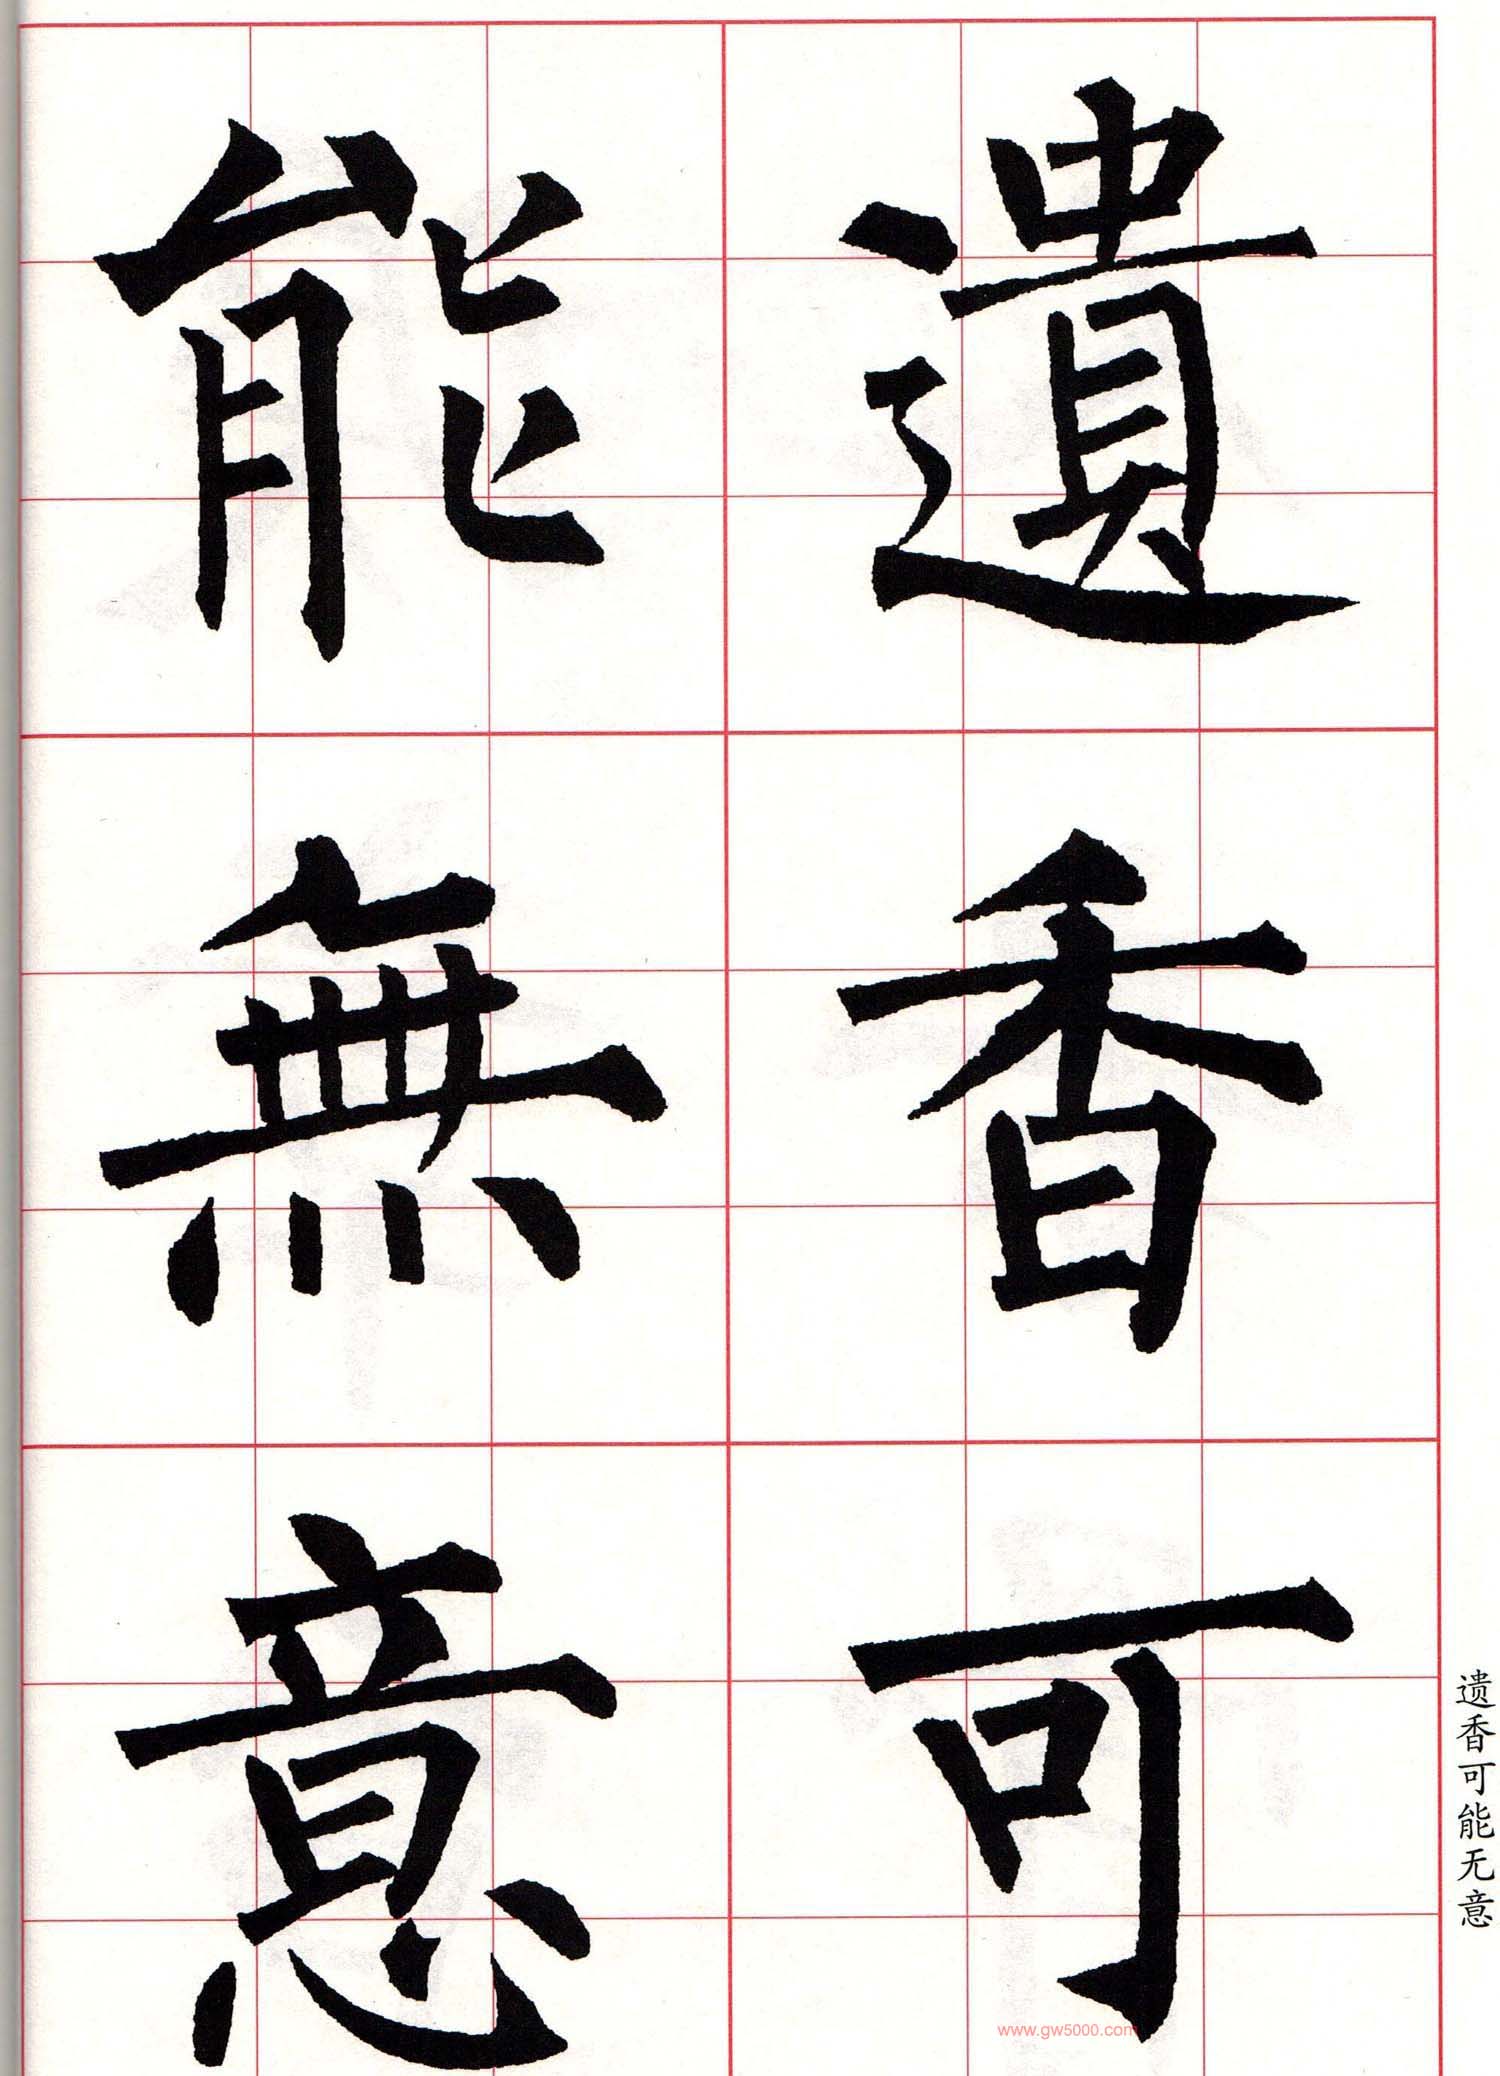 遺香可
能無意
遗香可能无意
www.gw5000.com